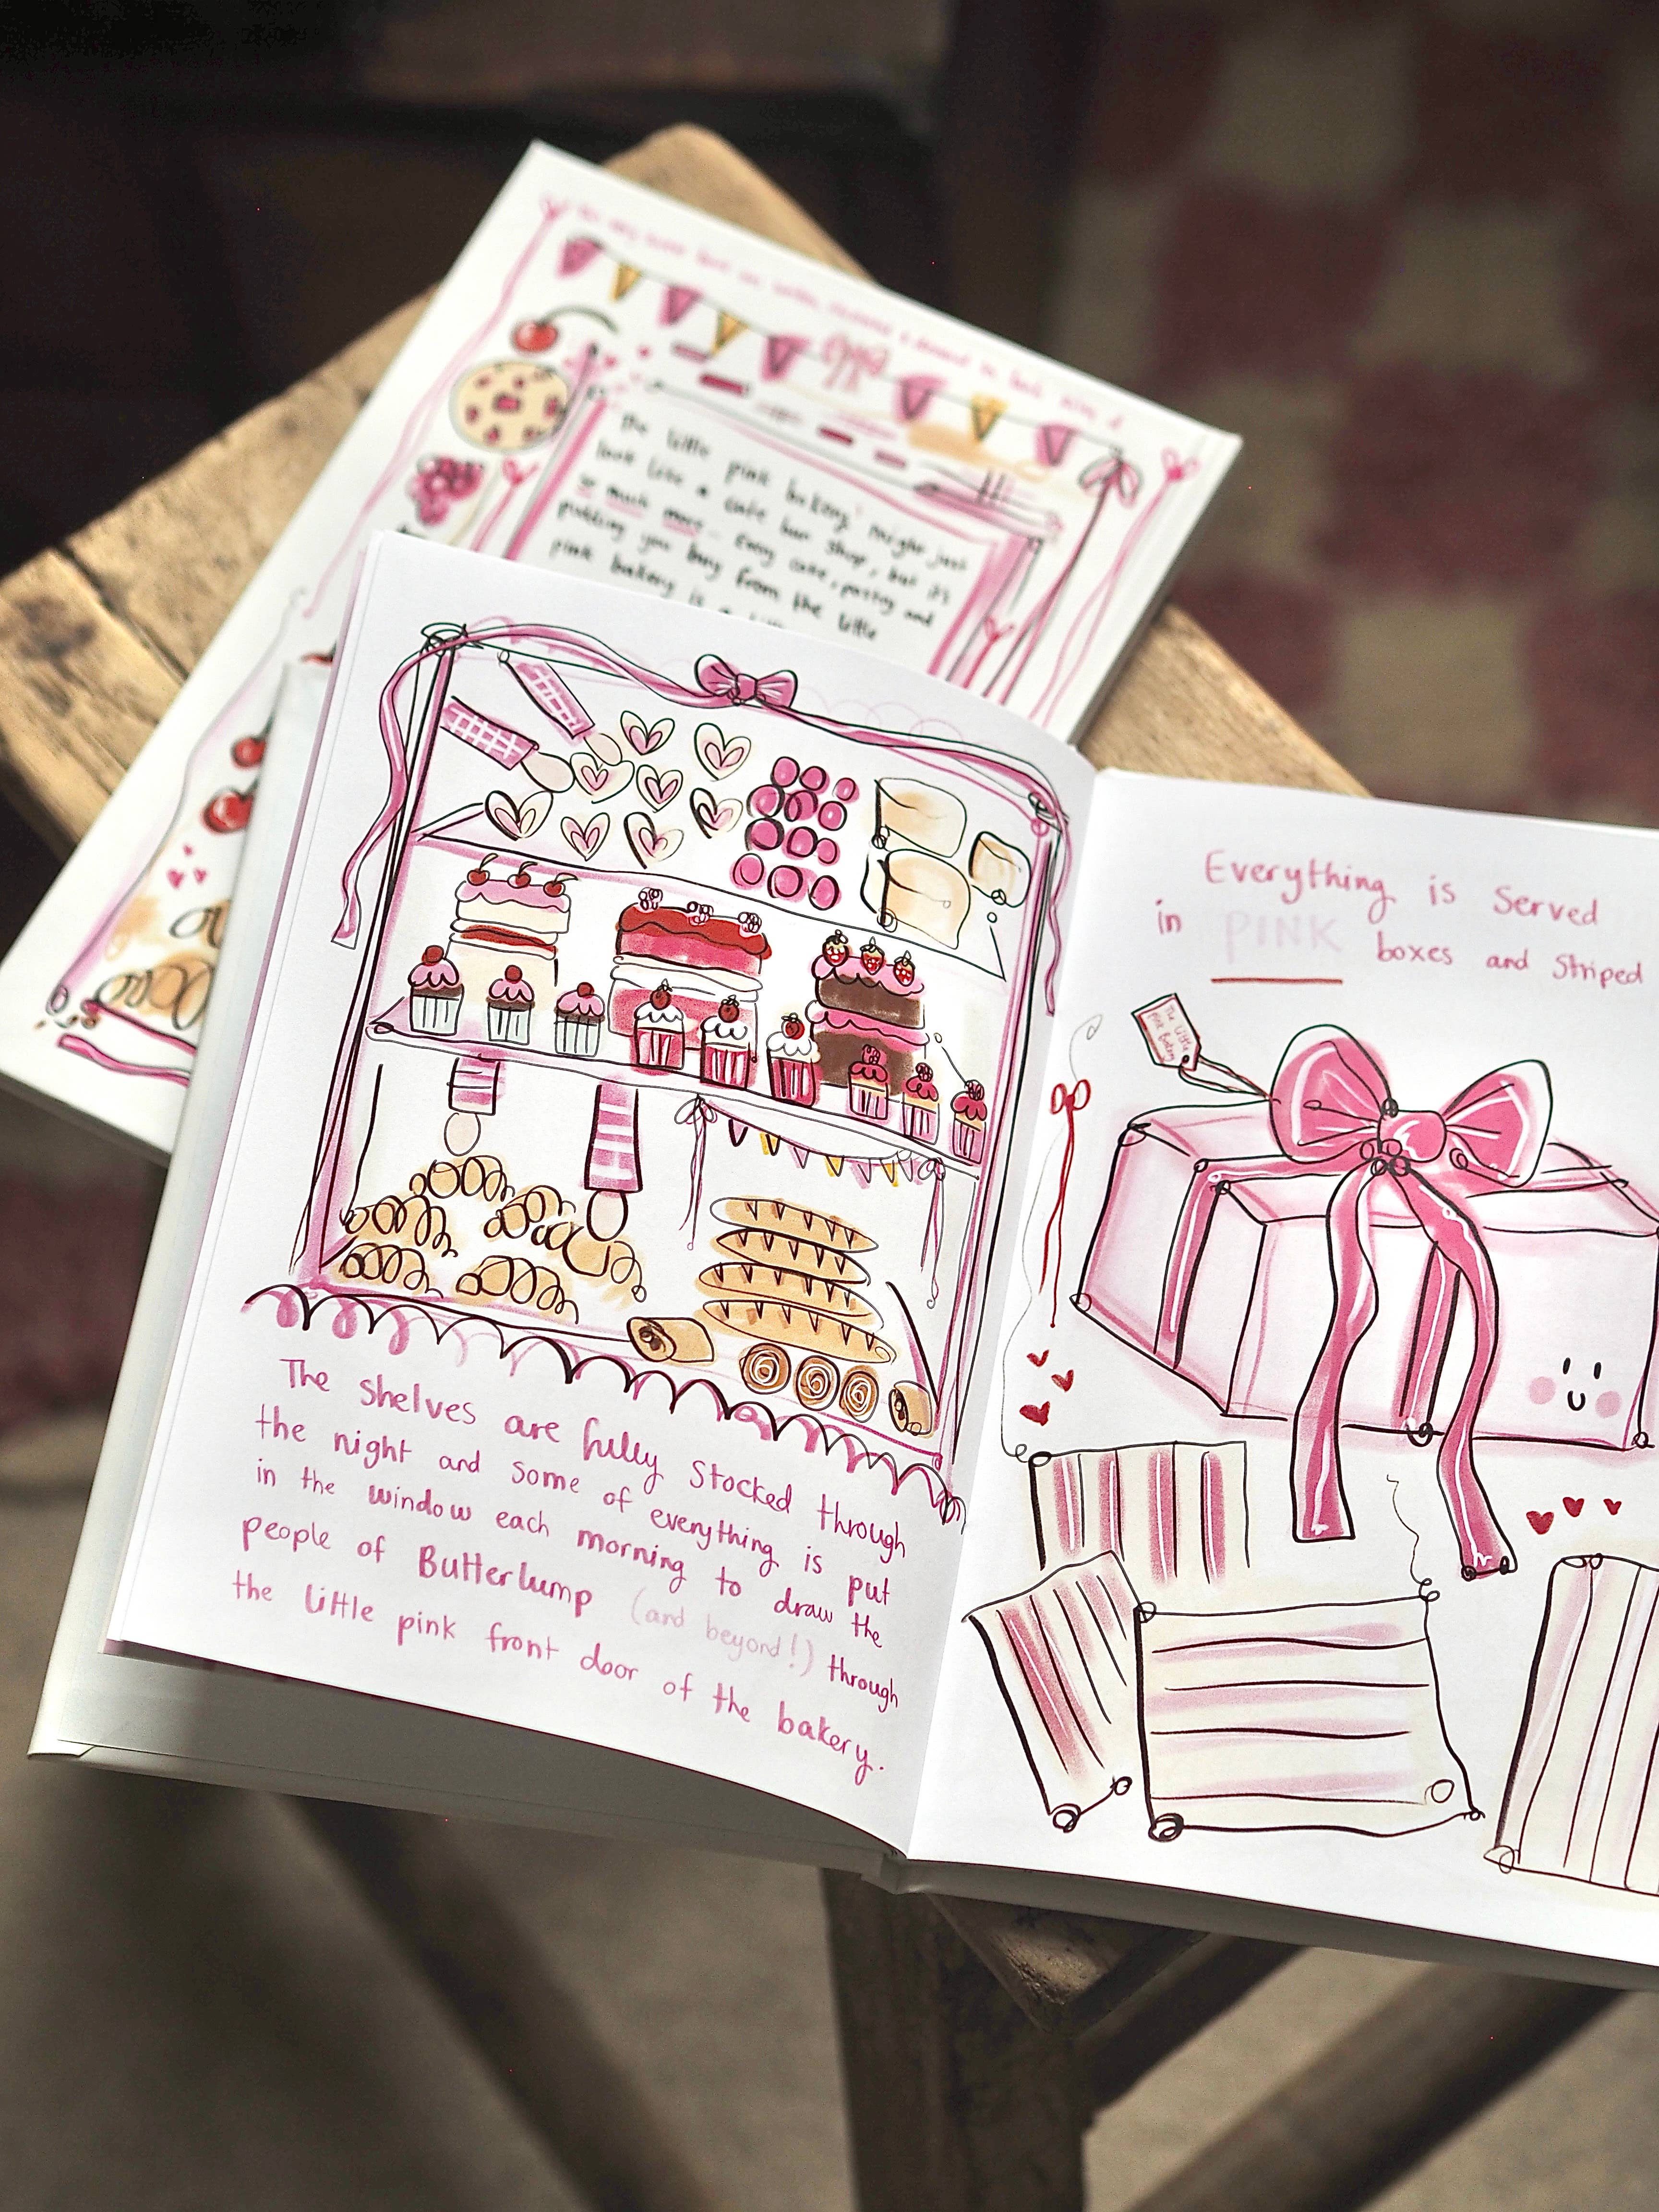 The little pink bakery might just
look like a cake bun shop, but it's
so much more... Every cake, pastry and
pudding you buy from the little
pink bakery is a
The shelves are fully stocked through
the night and some of everything is put
in the window each morning to draw the
people of Butterlump (and beyond!) through
the little pink front door of the bakery.
Everything is served
in PINK boxes and striped
The little
pink bakery